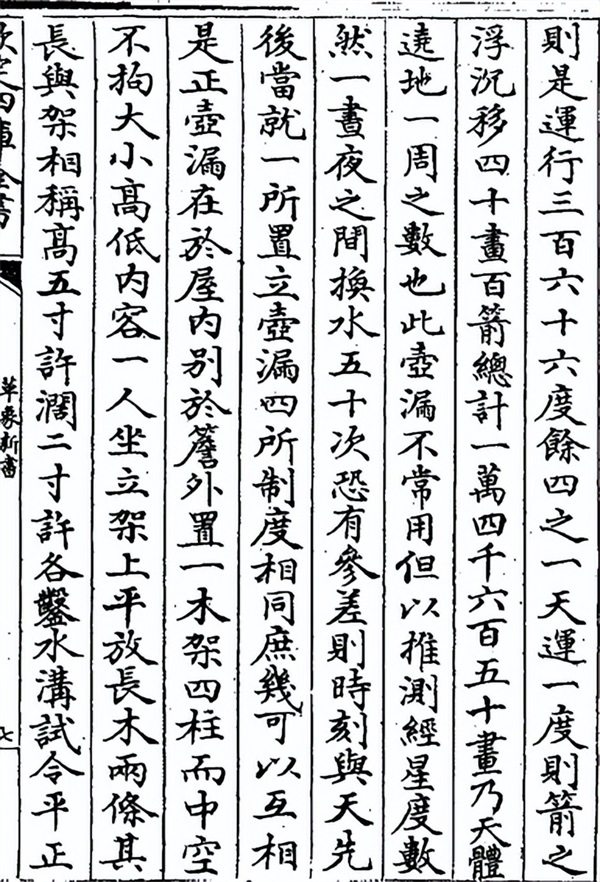 則是運行三百六十六度餘四之一天運一度則箭之
浮沉移四十畫百箭總計一萬四千六百五十畫乃天體
遶地一周之數也此壺漏不常用但以推測經星度數
然一晝夜之間換水五十次恐有參差則時刻與天先
後當就一所置立壺漏四所制度相同庶幾可以互相
是正壺漏在於屋内別於簷外置一木架四柱而中空
不拘大小高低内容一人坐立架上平放長木兩條其
長與架相稱高五寸許濶二寸許各鑿水溝試令平正
欽定四庫全書
革象新書
七